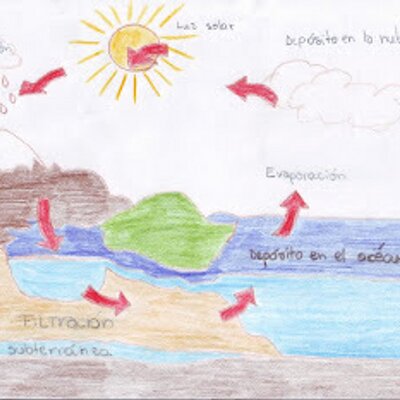 Luz solar
Depósito en la nub
Evaporación
Depósito en el océan
Filtración
subterránea